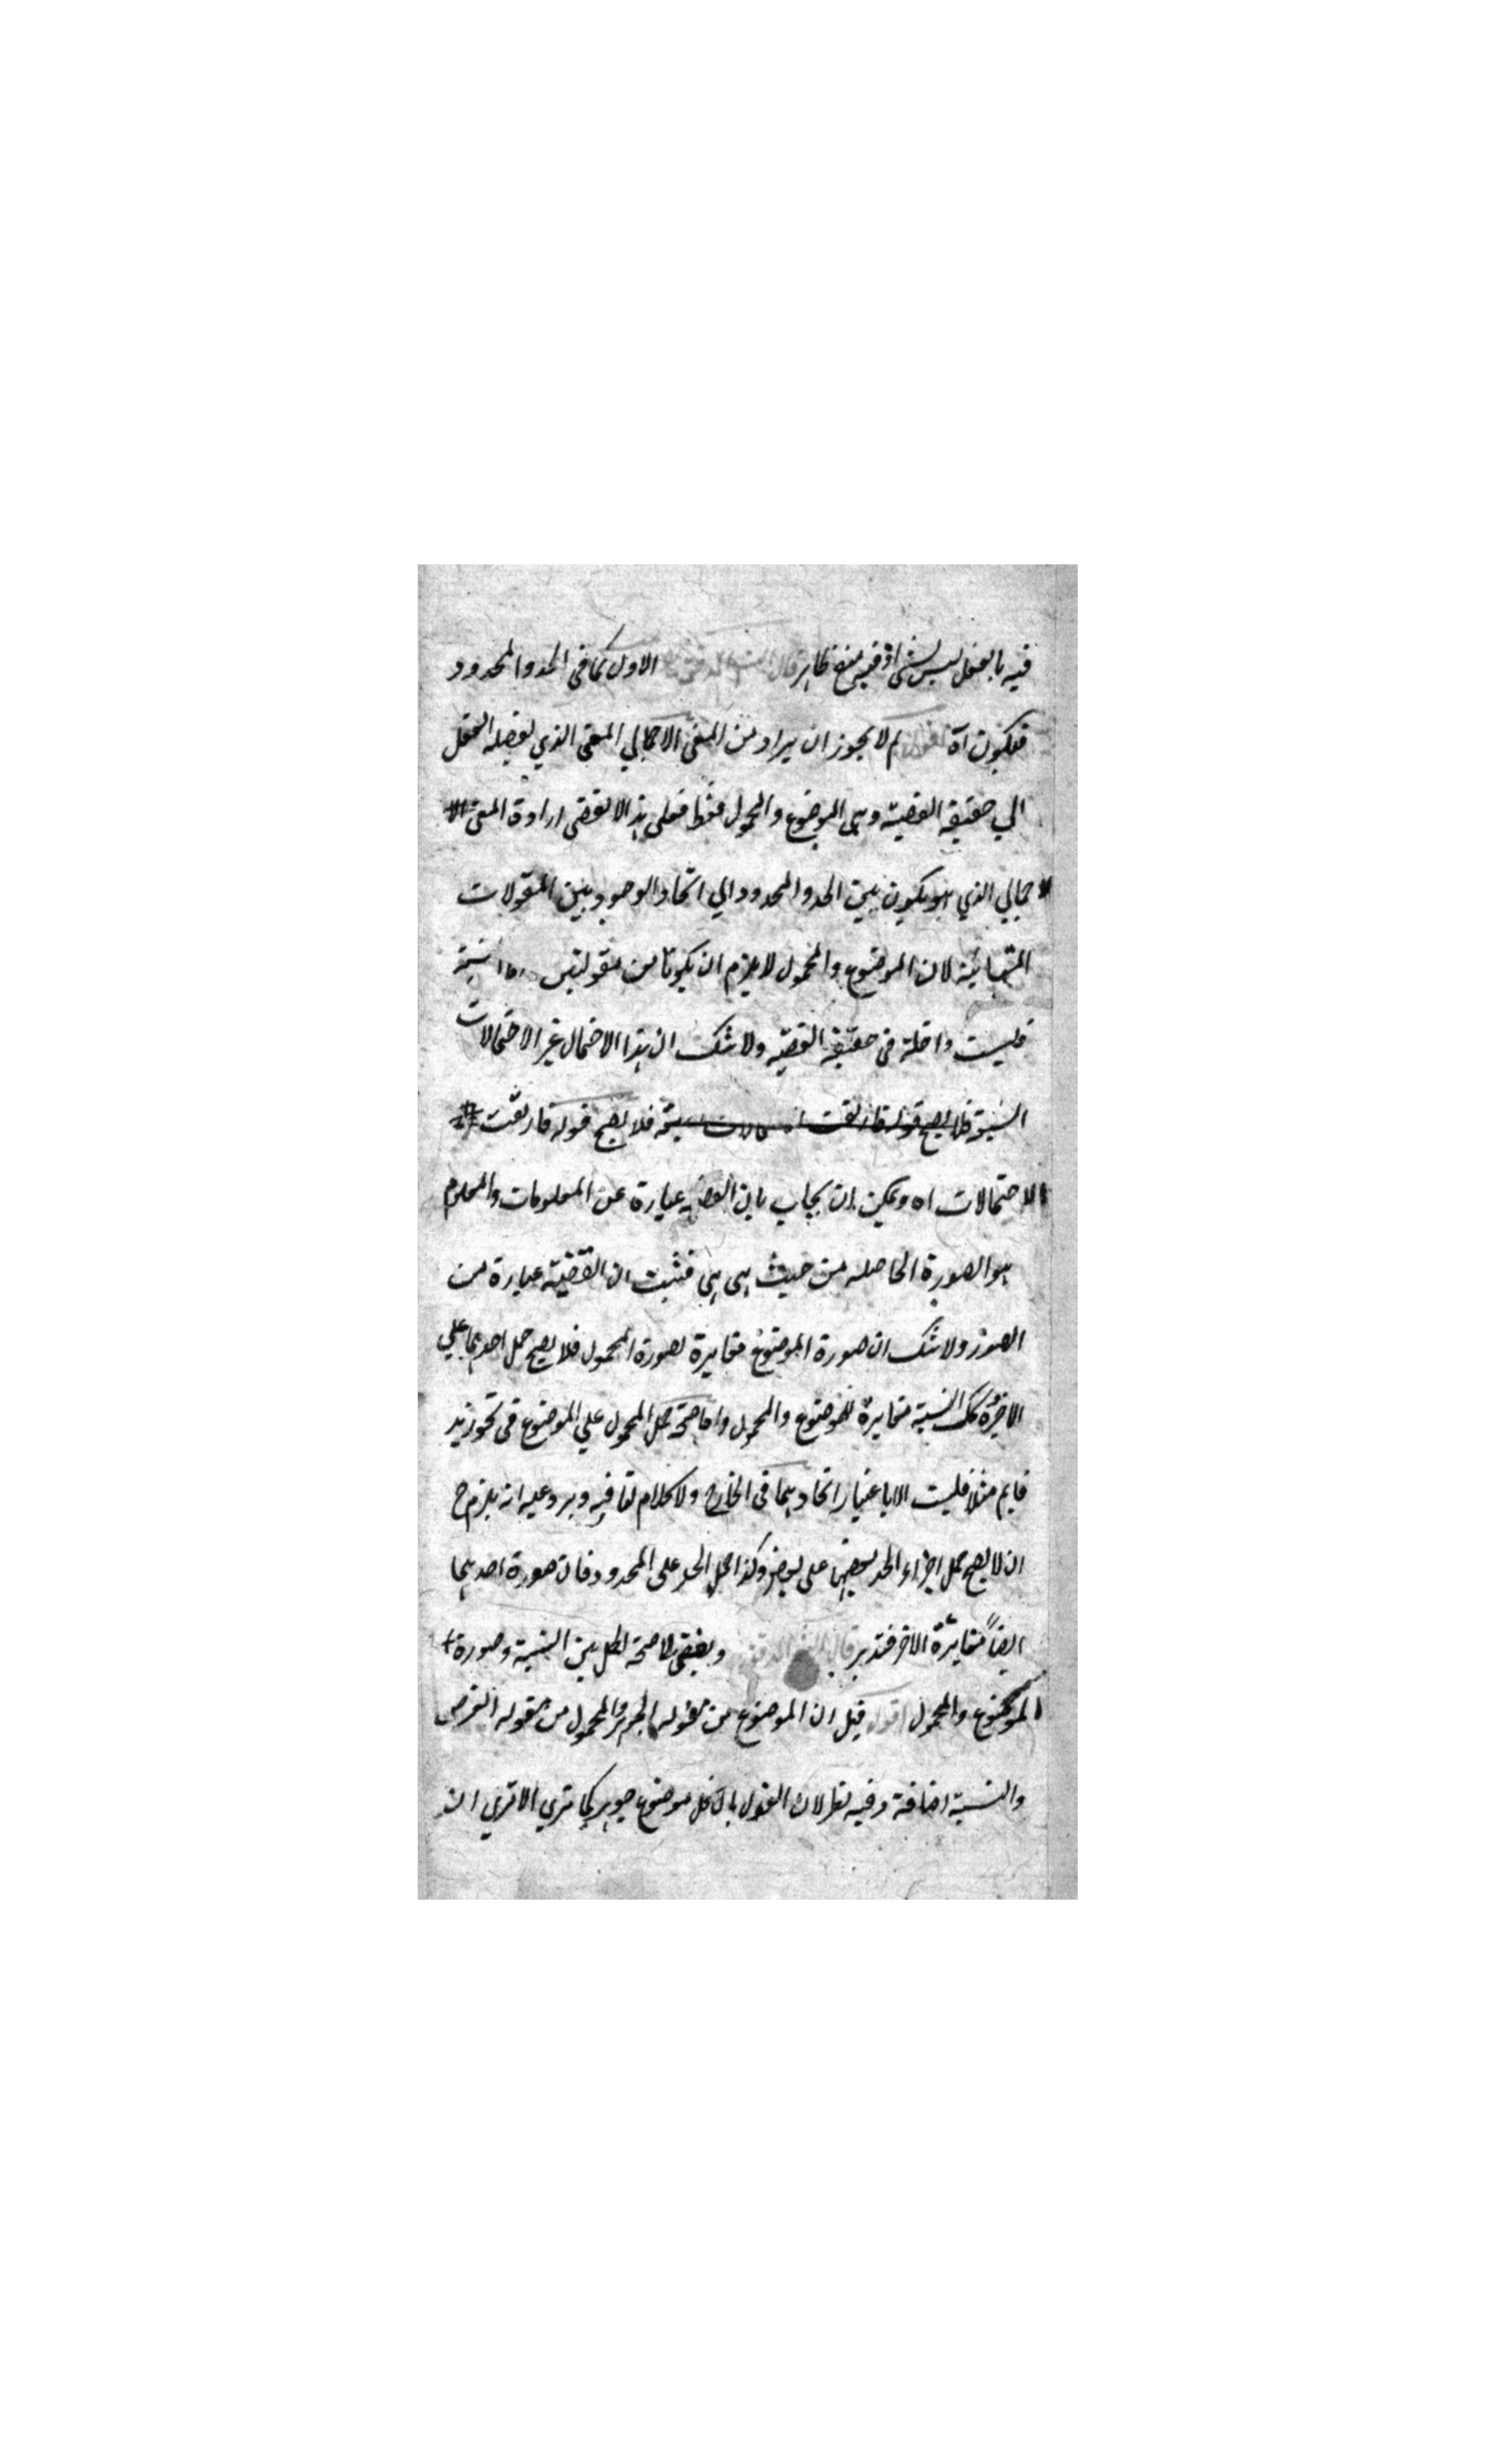 فيه بالفعل ليس بشئ اذ فيه منع ظاهر قال الاول كما فى الحد والمحدود
فيكون آه اقول لم لا يجوز ان يراد من المعنى الاجمالي المعنى الذي يفصله العقل
الي حقيقة القضية وهى الموضوع والمحمول فقط فعلى هذا لا تفضى ارادة المعنى
الاجمالي الذي هو يكون بين الحد والمحدود الي اتحاد الوجود بين المقولات
المتباينة لان الموضوع والمحمول لا يلزم ان يكونا من مقولتين نسبة
فليست داخلة فى حقيقة القضية ولا شك ان هذا الاحتمال غير الاحتمالات
النسبة فلا يصح قوله فارتفعت فلا يصح قوله فارتفعت
الاحتمالات اه ويمكن ان يجاب بان القضيه عبارة عن المعلومات والمعلوم
هو الصورة الحاصله من حيث هى هى فثبت ان القضية عبارة من
الصور ولا شك ان صورة الموضوع مغايرة لصورة المحمول فلا يصح حمل احدهما علي
الاخر وكك النسبة مغايرة للموضوع والمحمول واما صحة حمل المحمول علي الموضوع فى نحو زيد
قايم مثلا فليست الا باعتبار اتحادهما فى الخارج ولا كلام لنا فيه ويرد عليه انه يلزم ح
ان لا يصح حمل اجزاء الحد بعضها على بعض وكذا حمل الحد على المحدود فان صورة احدهما
ايضاً مغايرة الاخر فتدبر قال ويفضى الي صحة الحمل بين النسبة وصورة
الموضوع والمحمول اقول قيل ان الموضوع من مقوله الجوهر والمحمول من مقوله العرض
والنسبة اضافة وفيه نظر لان القول بان كل موضوع جوهر كما تري الا تري ان